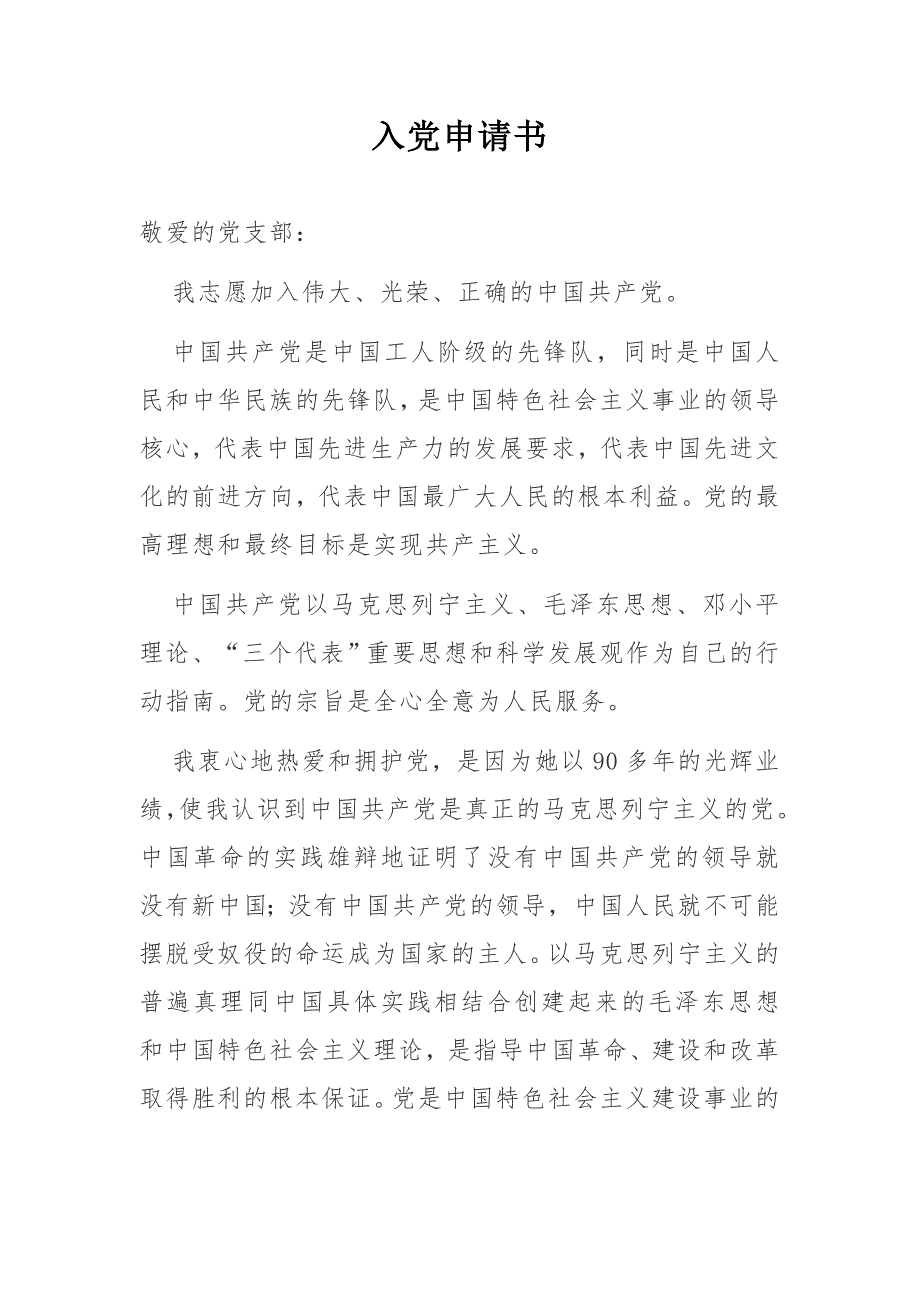 入党申请书
敬爱的党支部：
我志愿加入伟大、光荣、正确的中国共产党。
中国共产党是中国工人阶级的先锋队，同时是中国人
民和中华民族的先锋队，是中国特色社会主义事业的领导
核心，代表中国先进生产力的发展要求，代表中国先进文
化的前进方向，代表中国最广大人民的根本利益。党的最
高理想和最终目标是实现共产主义。
中国共产党以马克思列宁主义、毛泽东思想、邓小平
理论、“三个代表”重要思想和科学发展观作为自己的行
动指南。党的宗旨是全心全意为人民服务。
我衷心地热爱和拥护党，是因为她以 90 多年的光辉业
绩，使我认识到中国共产党是真正的马克思列宁主义的党。
中国革命的实践雄辩地证明了没有中国共产党的领导就
没有新中国；没有中国共产党的领导，中国人民就不可能
摆脱受奴役的命运成为国家的主人。以马克思列宁主义的
普遍真理同中国具体实践相结合创建起来的毛泽东思想
和中国特色社会主义理论，是指导中国革命、建设和改革
取得胜利的根本保证。党是中国特色社会主义建设事业的